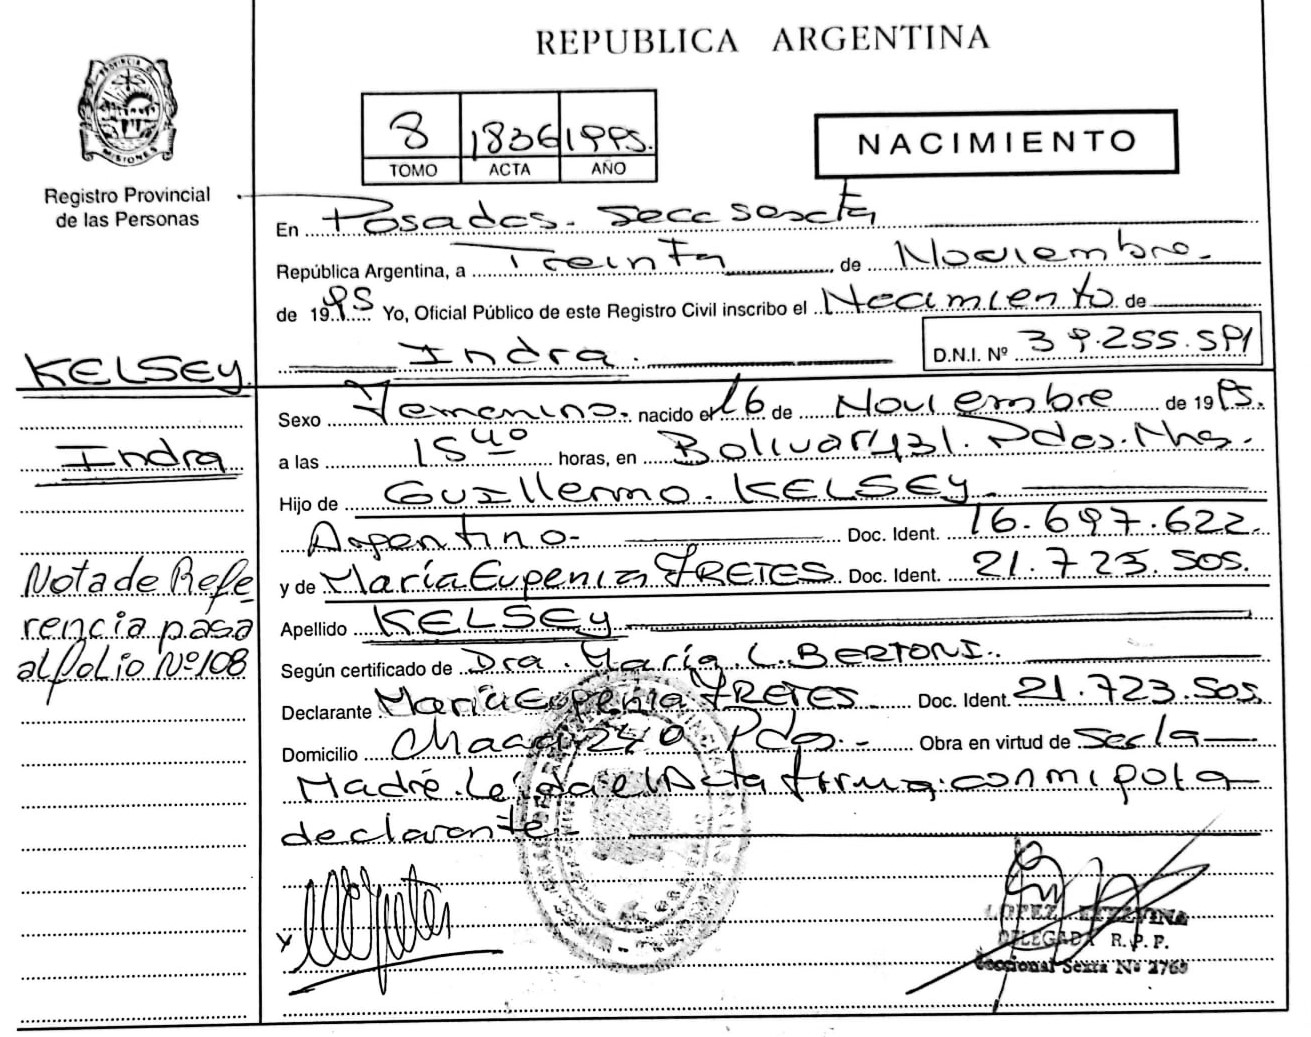 REPUBLICA ARGENTINA
PROVINCIA DE MISIONES
Registro Provincial
de las Personas
8 1836 1995.
TOMO ACTA AÑO
NACIMIENTO
En Posadas. Secc sexta
República Argentina, a Treinta de Noviembre.
de 1995 Yo, Oficial Público de este Registro Civil inscribo el Nacimiento de
Indra. D.N.I. Nº 39.255.591
KELSEY.
Indra
Nota de Refe
rencia pasa
al folio Nº 108
Sexo Femenino. nacido el 16 de Noviembre de 1995.
a las 15 40 horas, en Bolivar 1731. Pdas. Mnes.
Hijo de Guillermo. KELSEY.
Argentino. Doc. Ident. 16.697.622.
y de María Eugenia FRETES. Doc. Ident. 21.723.505.
Apellido KELSEY
Según certificado de Dra. María. L. BERTONI.
Declarante María Eugenia FRETES Doc. Ident. 21.723.505.
Domicilio 240 Pdas.- Obra en virtud de Ser la
Madre. Leída el Acta firma. con migo la
declarante
LOPEZ ETELVINA
DELEGADA R. P. P.
Seccional Sexta Nº 2769